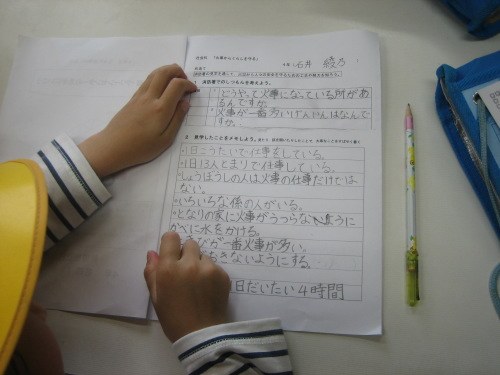 社会科 「火事からくらしを守る」
4年 石井 綾乃
1 消防署でのしつもんを考えよう。
どうやって火事になっている所があ
るんですか。
火事が一番多いげんいんはなんで
すか。
2 見学したことをメモしよう。
1日こうたいで仕事をしている。
1日13人とまりで仕事している。
しょうぼうしの人は火事の仕事だけでは
ない。
いろいろな係の人がいる。
となりの家に火事がうつらないように
かべに水をかける。
びが一番火事が多い。
きないようにする。
1日だいたい4時間